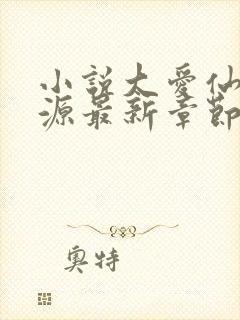 小説太愛仙
源最新章節
奧特